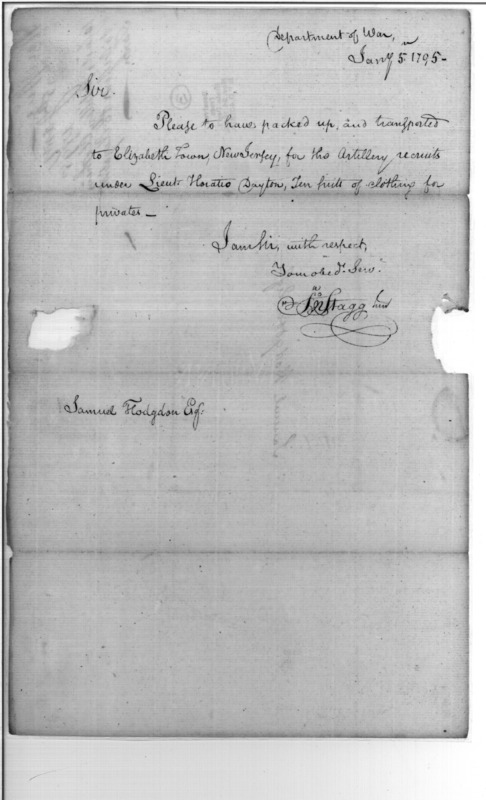 Department of War,
Jany 5th 1795-
Sir.
Please to have packed up, and transported
to Elizabeth Town, New Jersey, for the Artillery recruits
under Lieut Horatio Dayton, Ten suits of clothing for
privates—
I am Sir, with respect,
Your obed. Serv.
Jno Stagg Junr
Samuel Hodgdon Esq: